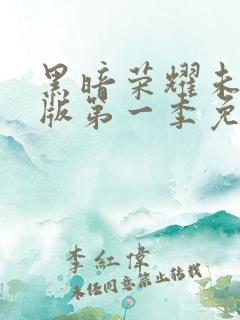 黑暗荣耀未
版第一季免
李紅偉
未经同意禁止转载